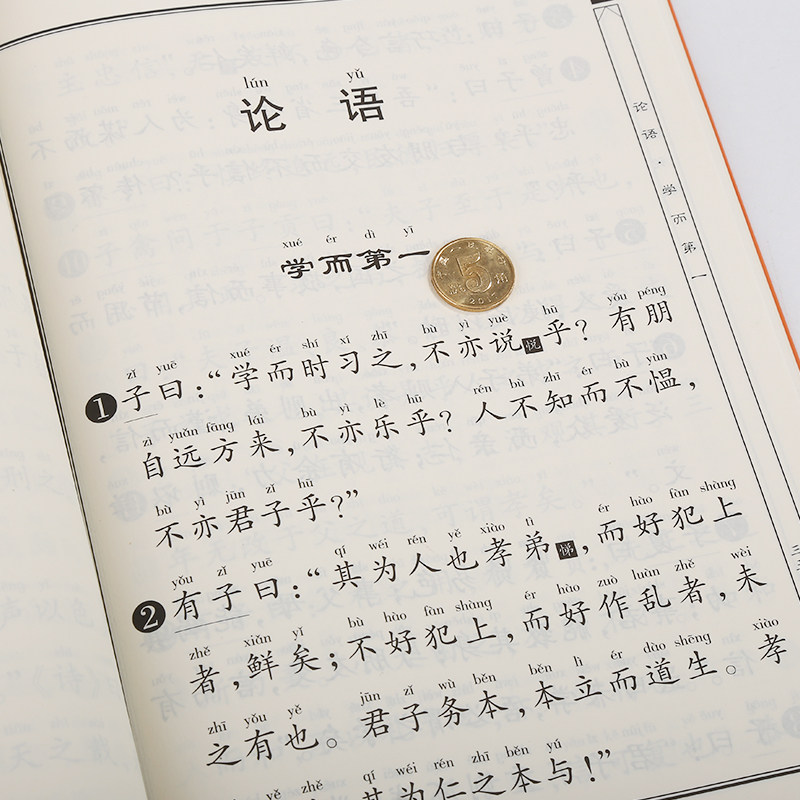 lún yǔ
论 语
xué ér dì yī
学而第一
5 角
2017
zǐ yuē xué ér shí xí zhī bù yì yuè hū yǒu péng
❶子曰：“学而时习之，不亦说悦乎？有朋
zì yuǎn fāng lái bù yì lè hū rén bù zhī ér bù yùn
自远方来，不亦乐乎？人不知而不愠，
bù yì jūn zǐ hū
不亦君子乎？”
yǒu zǐ yuē qí wéi rén yě xiào tì ér hào fàn shàng
❷有子曰：“其为人也孝弟悌，而好犯上
zhě xiǎn yǐ bù hào fàn shàng ér hào zuò luàn zhě wèi
者，鲜矣；不好犯上，而好作乱者，未
zhī yǒu yě jūn zǐ wù běn běn lì ér dào shēng xiào
之有也。君子务本，本立而道生。孝
yě zhě qí wéi rén zhī běn yú
其为仁之本与！”
论语·学而第一